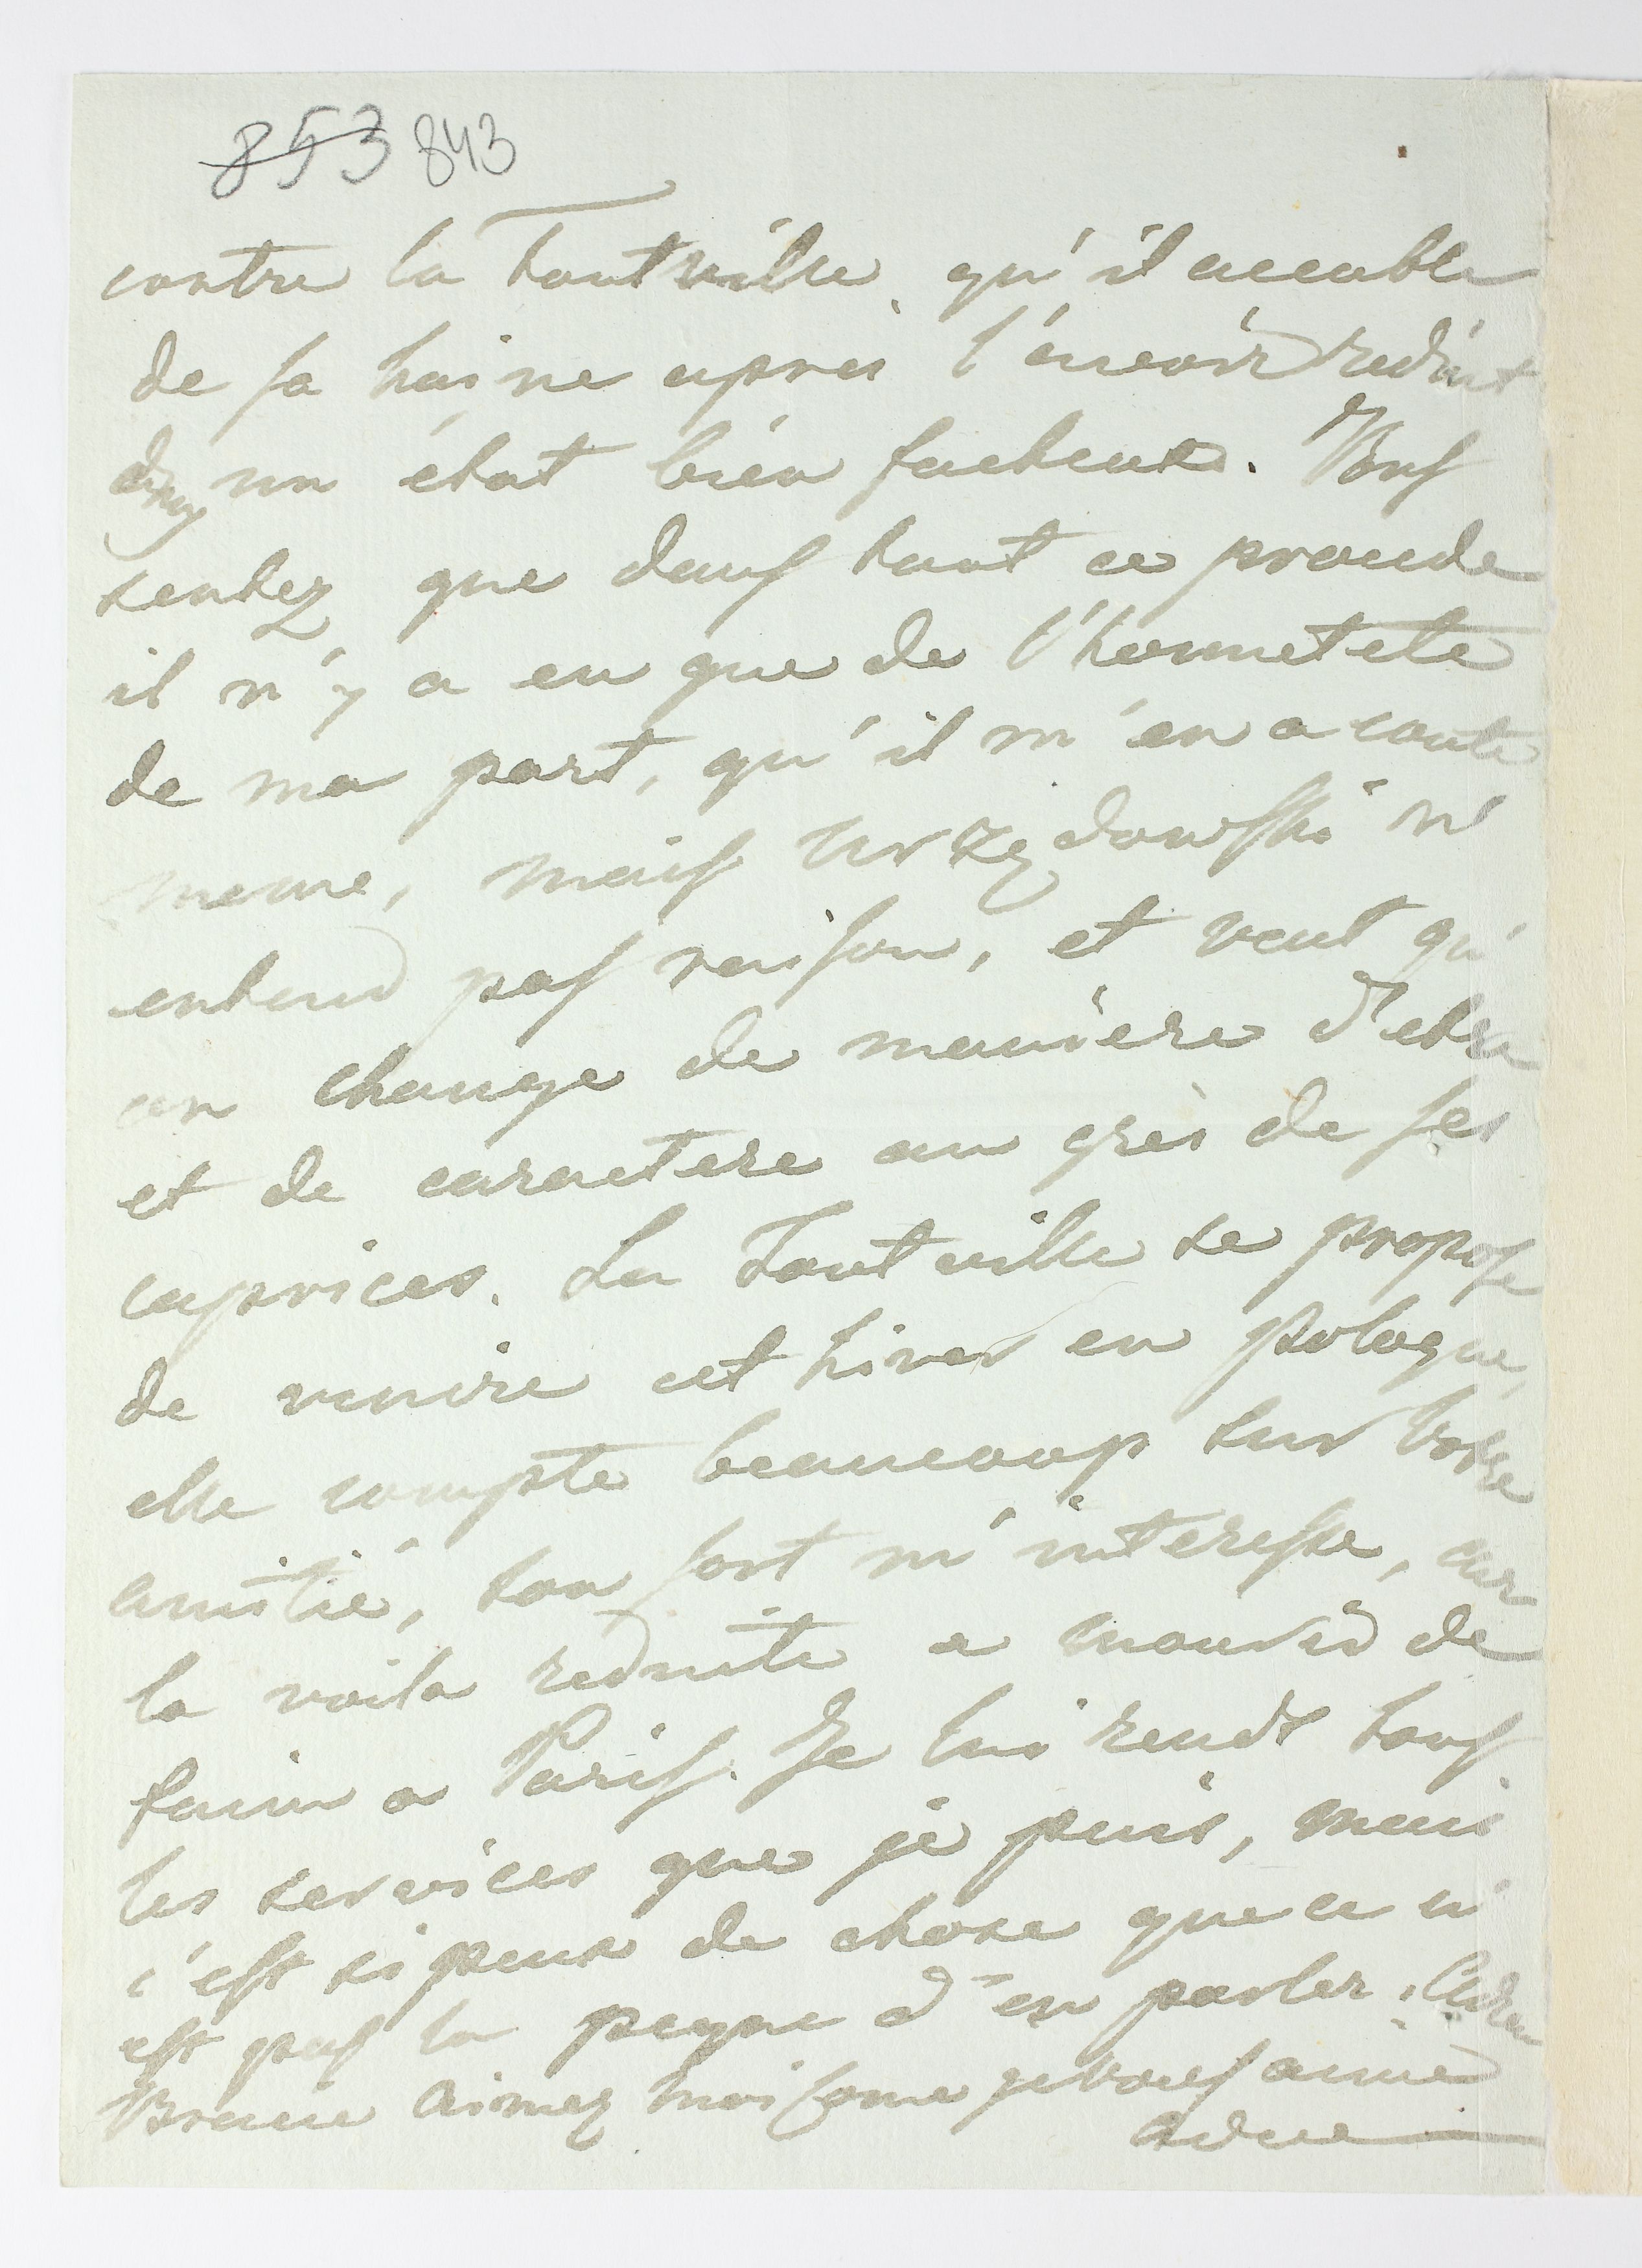 853 843
contre la Toutville, qu'il accable
de sa haine apres l'avoir reduit
dans un état bien facheux. Vous
sentez que dans tout ce procede
il n'y a eu que de l'honnetete
de ma part, qu'il m'en a couté
meme, mais Urzędowski n'
entend pas raison, et veut qu'
on change de maniere d'etre
et de caractere au grès de ses
caprices. La Toutville se propose
de venire cet hiver en pologne,
elle compte beaucoup sur votre
amitié, son sort m'interesse, car
la voila reduite a mourir de
faim a Paris. Je lui rends tous
les services que je puis, mais
c'est si peux de chose que ce n'
est pas la peyne d'en parler. Adieu
Aimez moi come je vous aime
Adieu